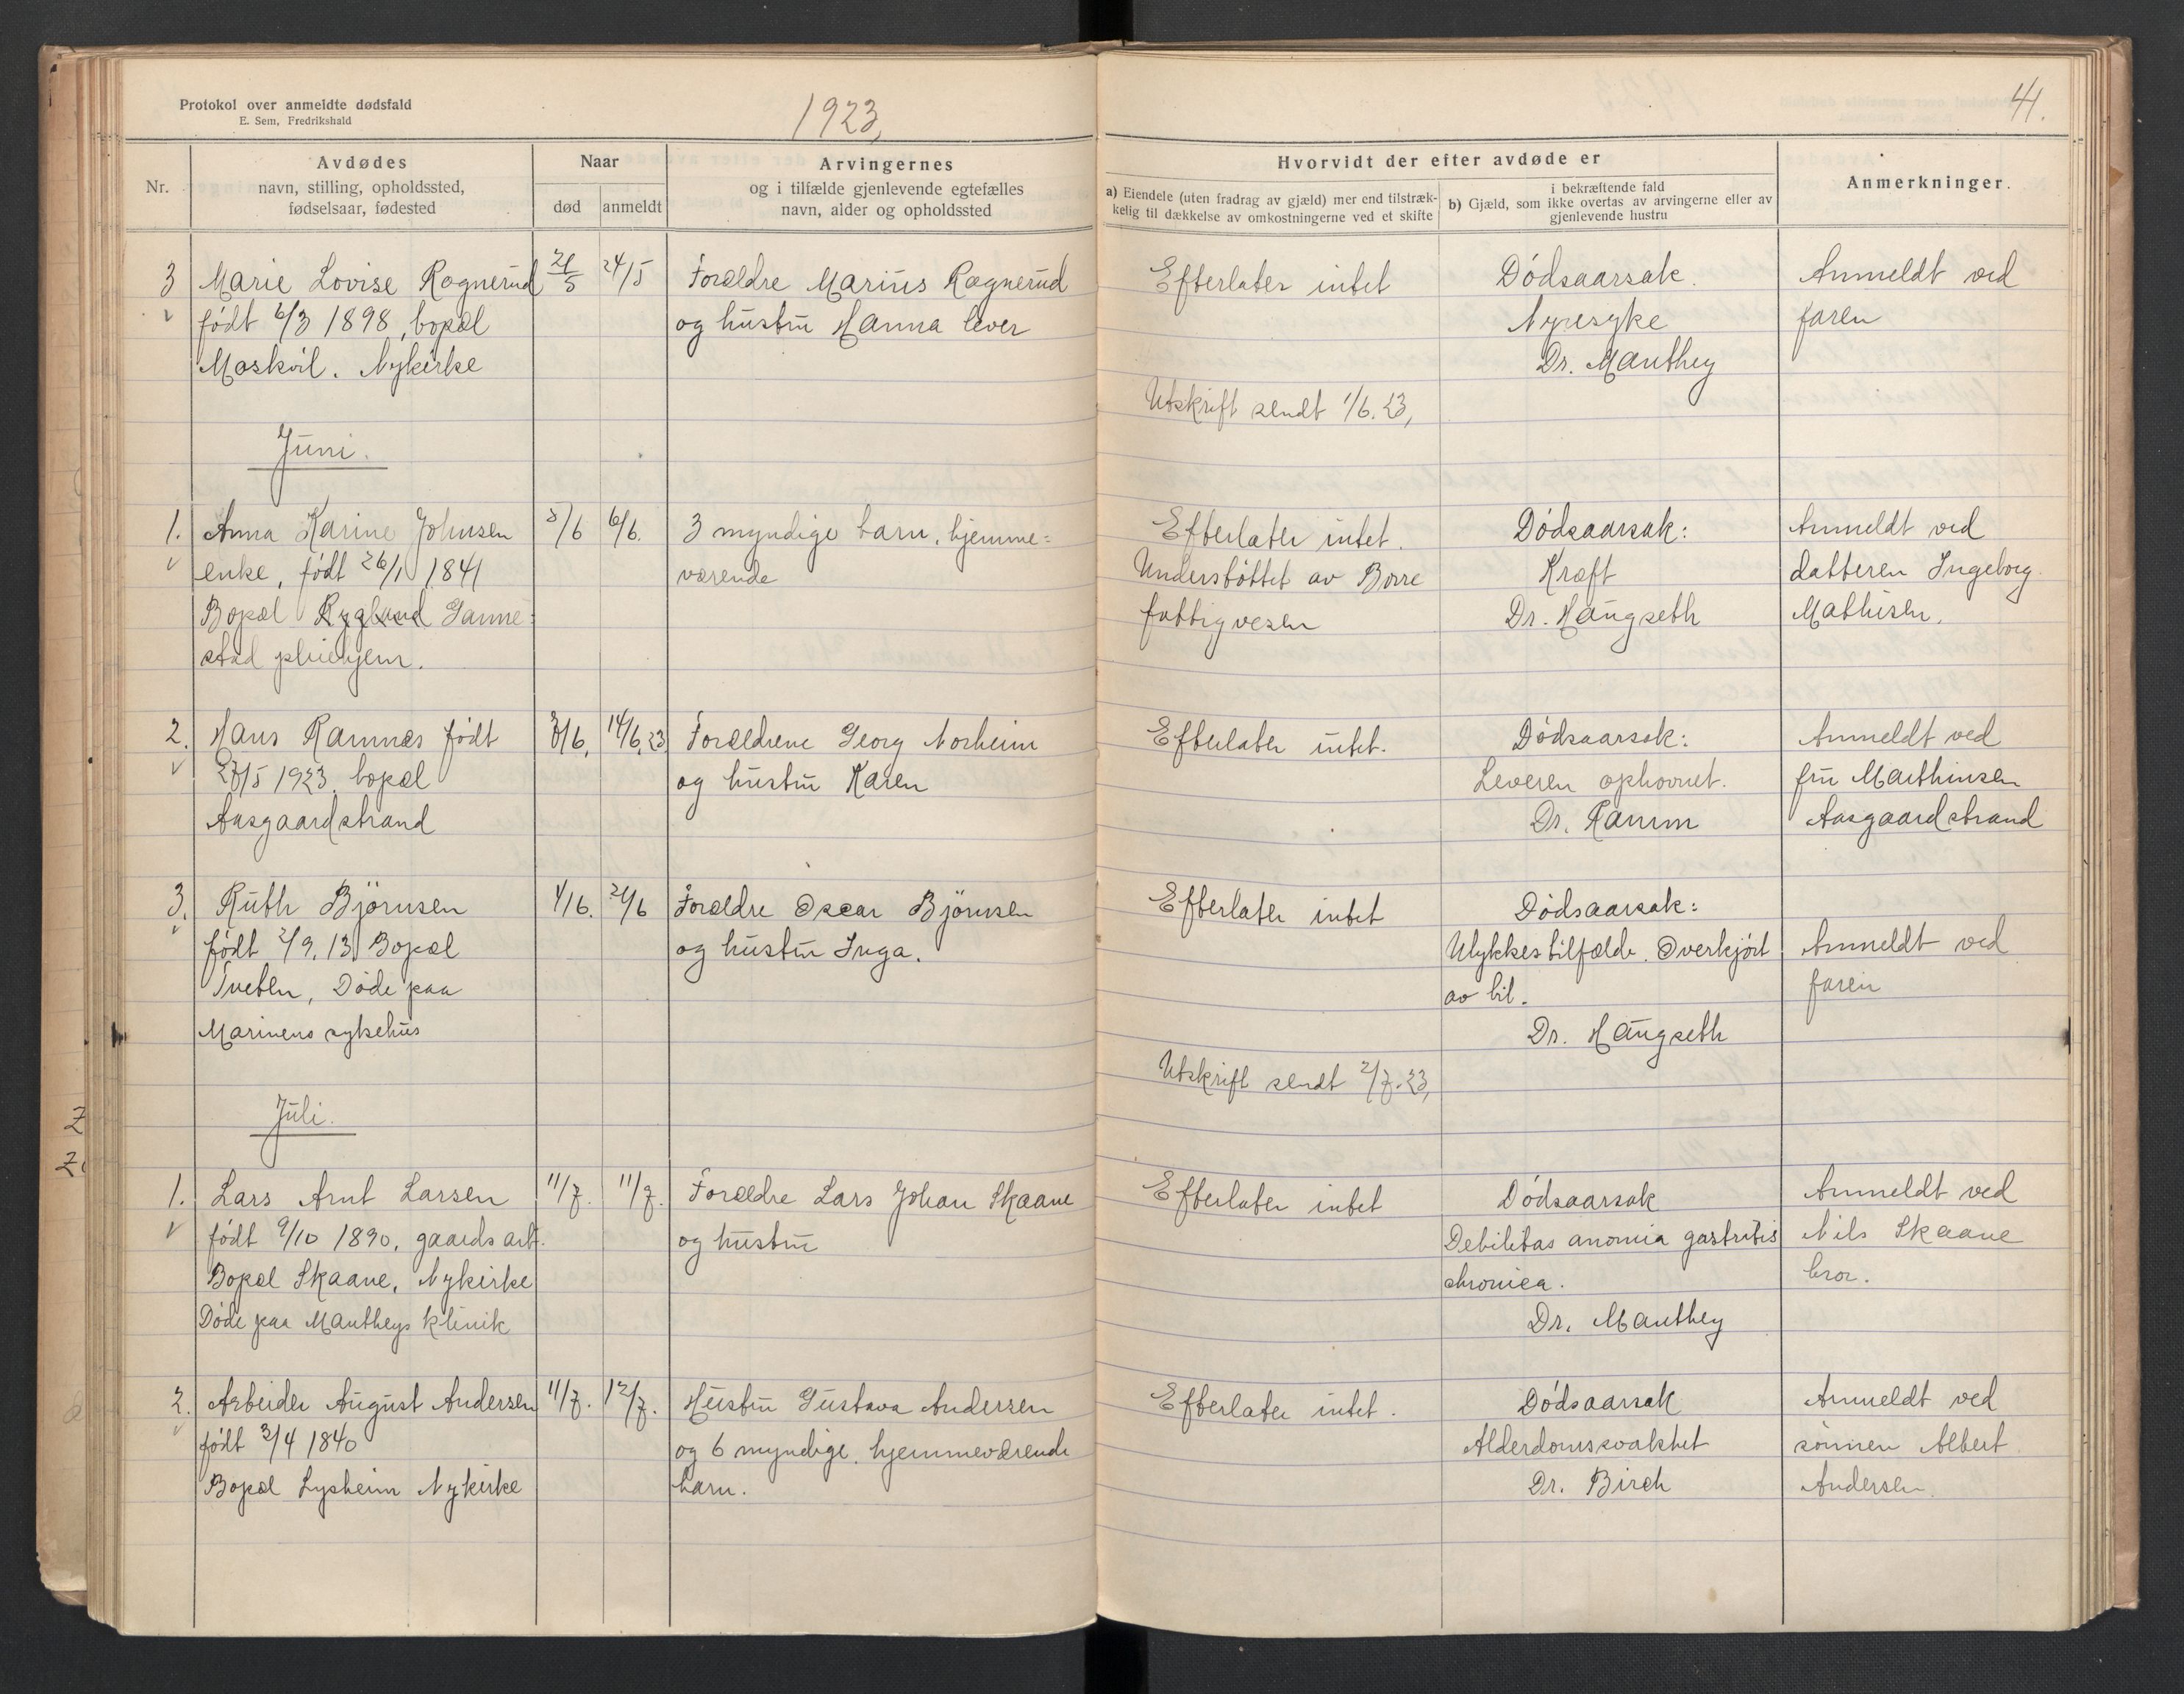 Protokol over anmeldte dødsfald
E. Sem, Fredrikshald
1923,
41.
Nr.
Avdødes
navn, stilling, opholdssted,
fødselsaar, fødested
Naar
død
anmeldt
Arvingernes
og i tilfælde gjenlevende egtefælles
navn, alder og opholdssted
Hvorvidt der efter avdøde er
a) Eiendele (uten fradrag av gjæld) mer end tilstræk-
kelig til dækkelse av omkostningerne ved et skifte
i bekræftende fald
b) Gjæld, som ikke overtas av arvingerne eller av
gjenlevende hustru
Anmerkninger.
3 Marie Lovise Ragnerud
født 6/3 1898, bopæl
Moskvil. Nykirke
21/5
24/5
Forældre Marius Ragnerud
og hustru Hanna lever
Efterlater intet
Utskrift sendt 1/6.23,
Dødsaarsak.
Nyresyke
Dr. Manthey
Anmeldt ved
faren
Juni.
1. Anna Karine Johnsen
enke, født 26/1 1841
Bopæl Rygland Ganne-
stad pleiehjem.
5/6
6/6.
3 myndige barn, hjemme=
værende
Efterlater intet.
Understøttet av Borre
fattigvesen
Dødsaarsak:
Kræft
Dr. Haugseth
Anmeldt ved
datteren Ingeborg
Mathisen.
2. Hans Ramnæs født
27/5 1923. bopæl
Aasgaardstrand
3/6,
14/6,23
Forældrene Georg Norheim
og hustru Karen
Efterlater intet.
Dødsaarsak:
Leveren ophovnet.
Dr. Ramm
Anmeldt ved
fru Marthinsen
Aasgaardstrand
3. Ruth Bjørnsen
født 2/9.13 Bopæl
Tveten, Døde paa
Marinens sykehus
4/6.
21/6
Forældre Oscar Bjørnsen
og hustru Inga.
Efterlater intet
Utskrift sendt 2/7.23,
Dødsaarsak:
Ulykkestilfælde. Overkjørt
av bil.
Dr. Haugseth
Anmeldt ved
faren
Juli.
1. Lars Arnt Larsen
født 9/10 1890, gaardsarb.
Bopæl Skaane, Nykirke
Døde paa Mantheys klinik
11/7.
11/7.
Forældre Lars Johan Skaane
og hustru
Efterlater intet
Dødsaarsak
Debilitas anomia gastritis
chronica.
Dr. Manthey
Anmeldt ved
Nils Skaane
bror.
2. Arbeider August Andersen
født 3/4 1840
Bopæl Lysheim Nykirke
11/7.
12/7.
Hustru Gustava Andersen
og 6 myndige, hjemmeværende
barn.
Efterlater intet.
Dødsaarsak
Alderdomssvakhet
Dr. Birch
Anmeldt ved
sønnen Albert
Andersen.